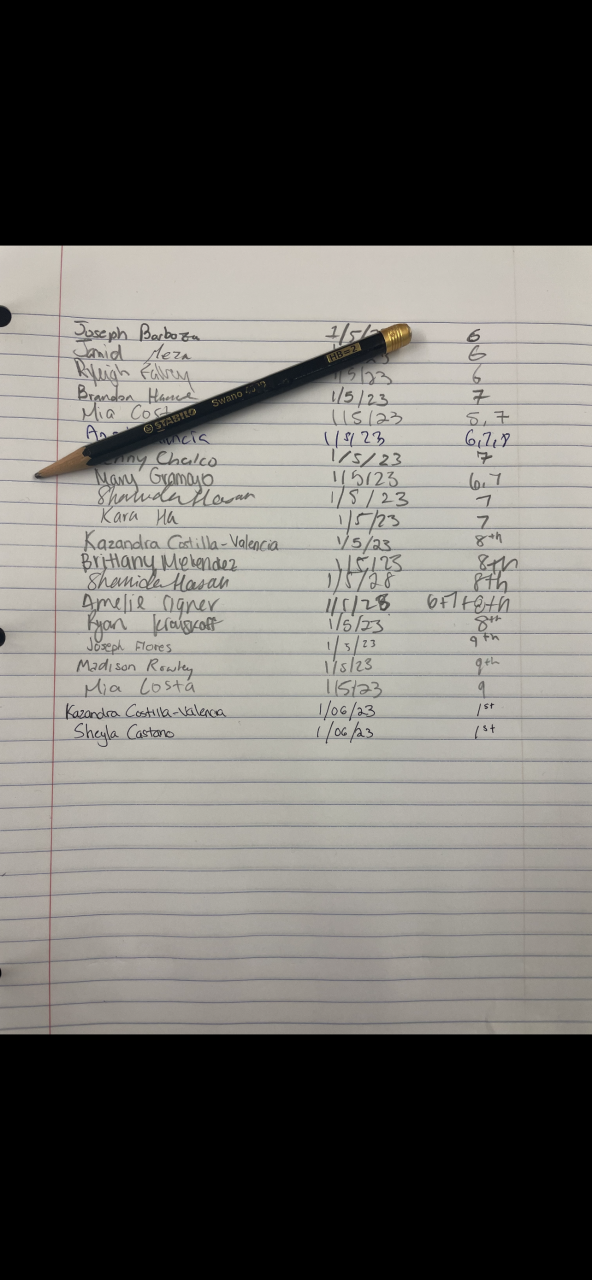 Joseph Barboza 1/5/ 6
Jamid Meza 6
Ryleigh Fabry 1/5/23 6
Brandon 1/5/23 7
Mia Cost 1/5/23 5, 7
1/5/23 6,7,8
Chalco 1/5/23 7
Many Gramayo 1/5/23 6,7
Shamida Hasan 1/5/23 7
Kara Ha 1/5/23 7
Kazandra Costilla-Valencia 1/5/23 8th
Brittany Melendez 1/5/23 8th
Shamida Hasan 1/5/28 8th
Amelie 1/5/28 6+7+8th
Ryan 1/5/23 8th
Joseph Flores 1/5/23 9th
Madison Rowley 1/5/23 9th
Mia Costa 1/5/23 9
Kazandra Costilla-Valencia 1/06/23 1st
Sheyla Castano 1/06/23 1st
STABILO Swano HB=2